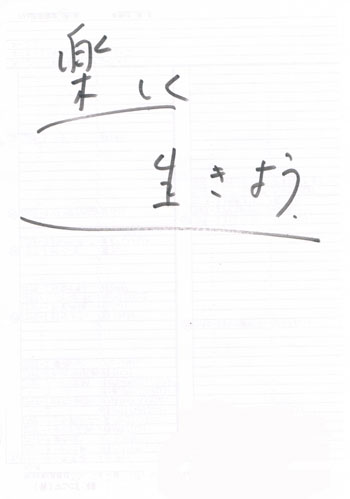 楽しく
生きよう